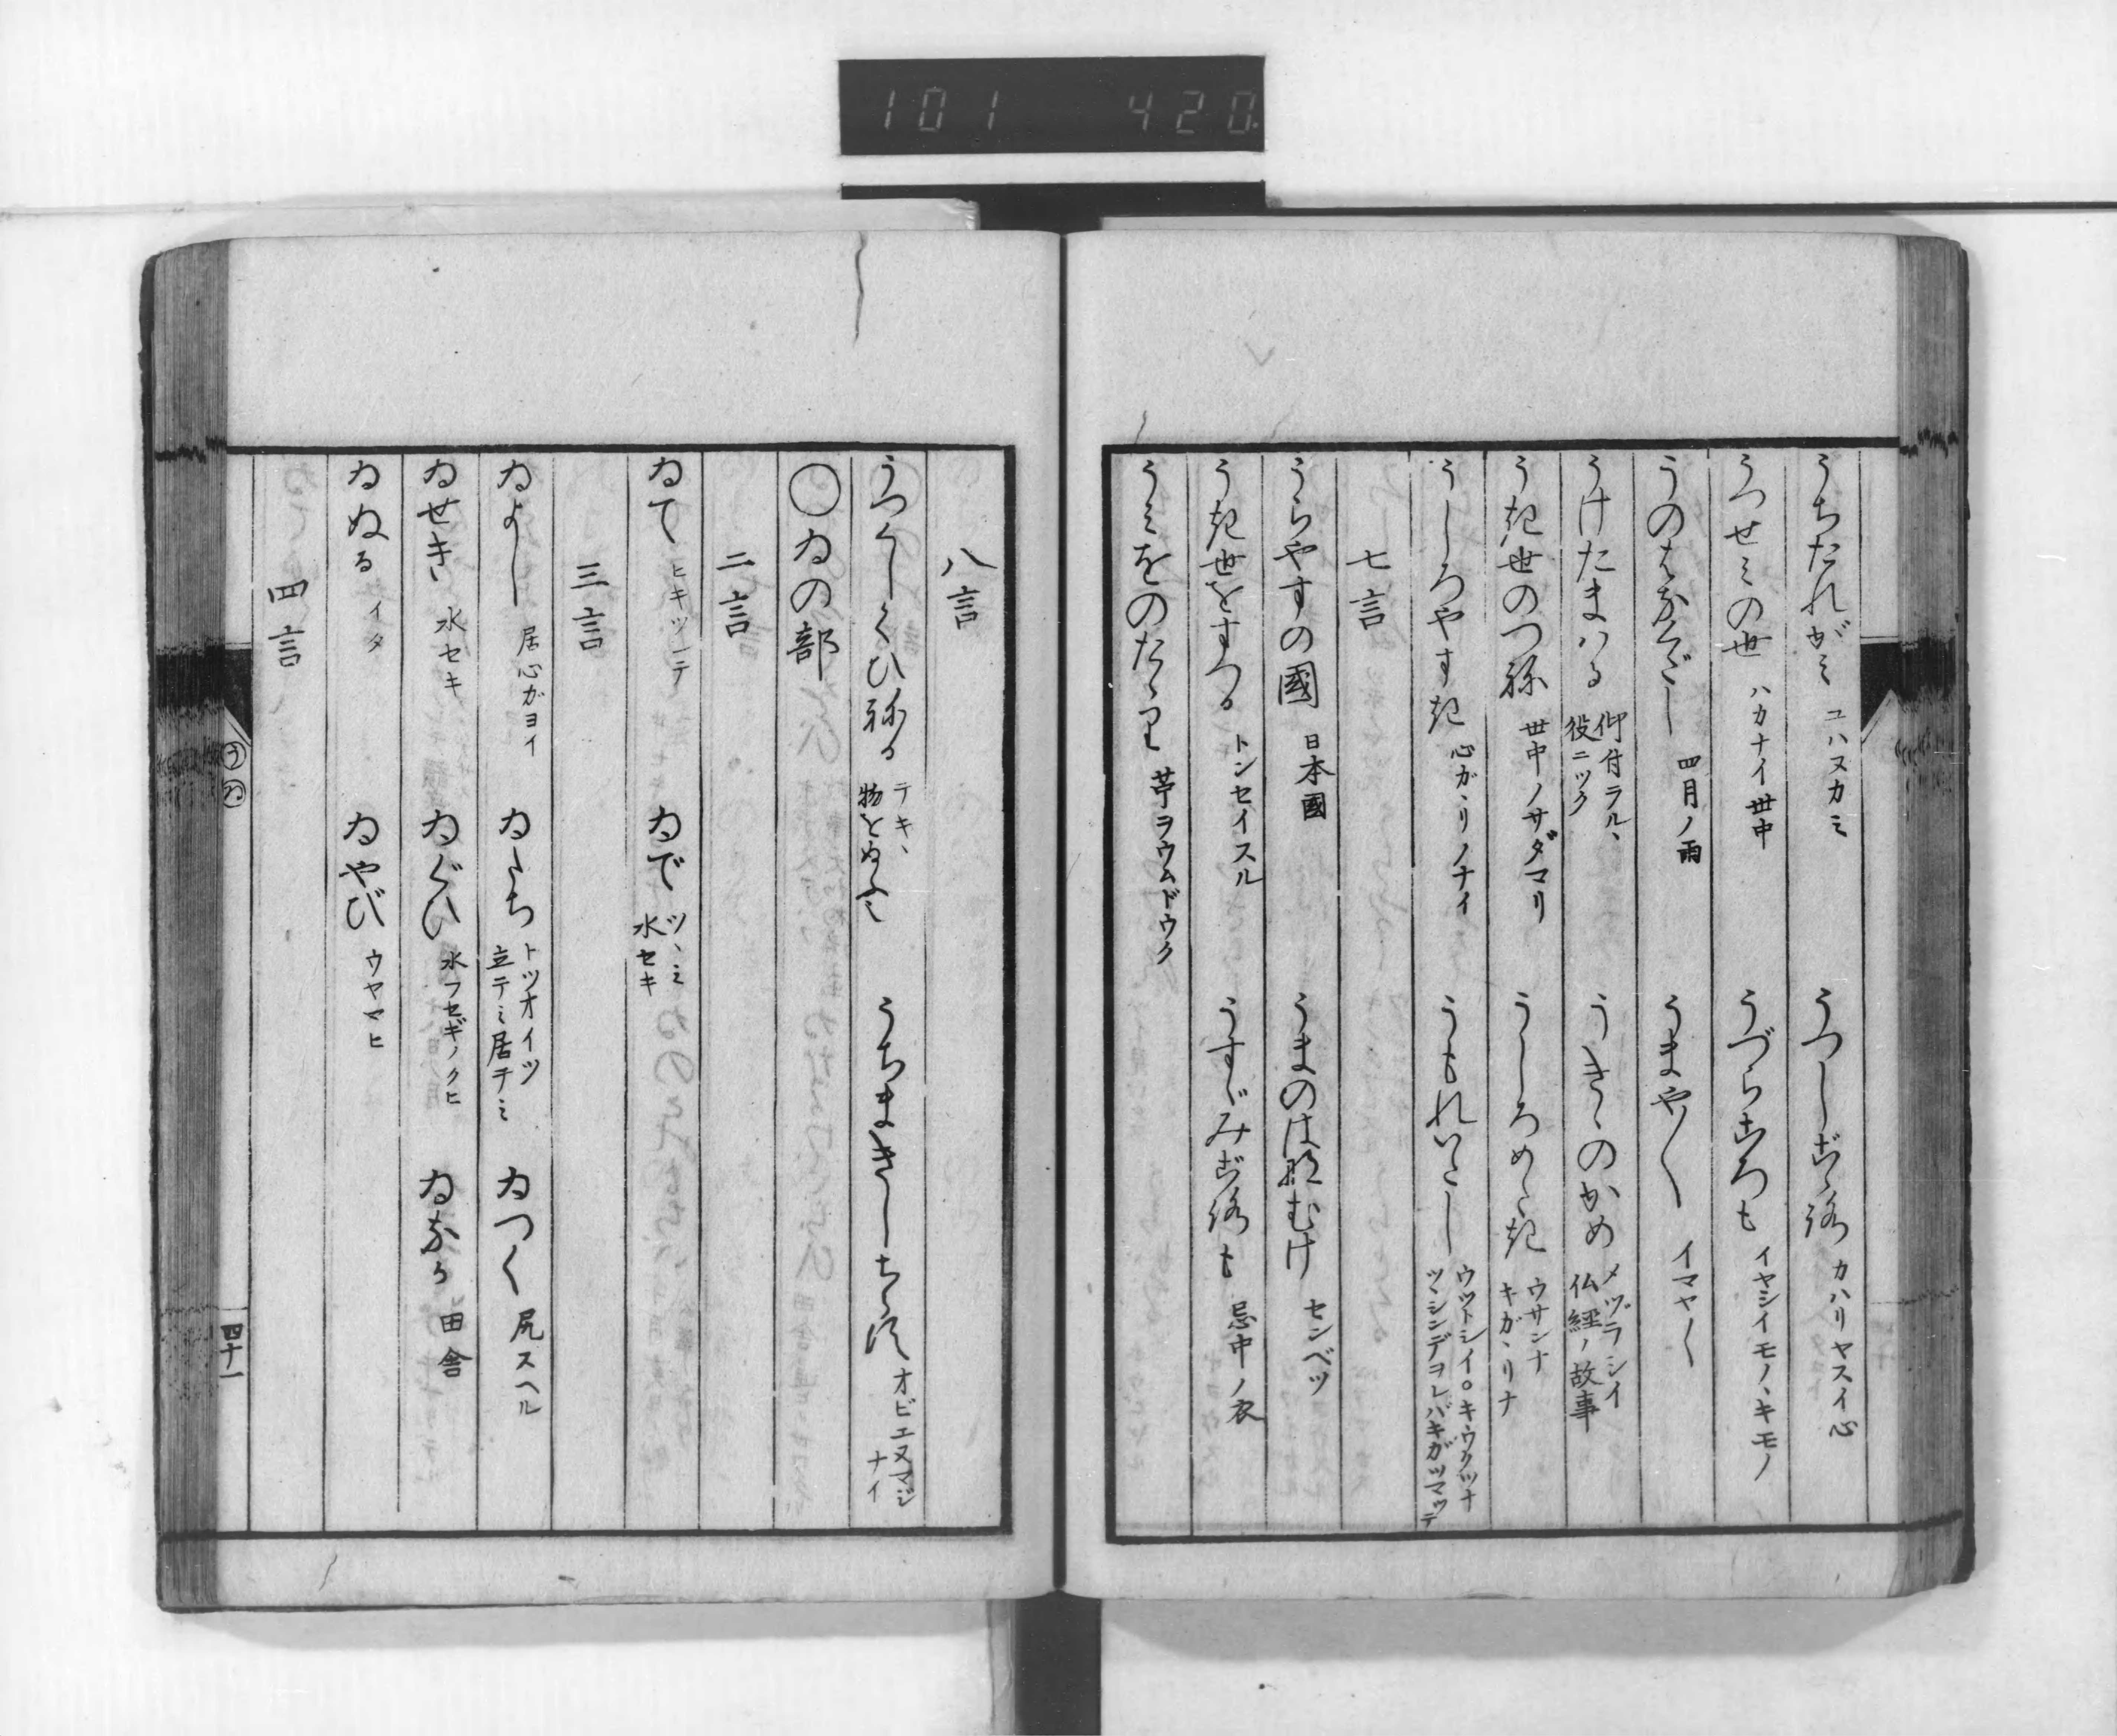 101 420
うちたれがミ ユハヌカミ うつしごゝろ カハリヤスイ心
うつせミの世 ハカナイ世中 うづらごろも イヤシイモノヽキモノ
うのはなくだし 四月ノ雨 うまや〱 イマヤ〱
うけたまハる 仰付ラルヽ 役ニツク うきゝのかめ メヅラシイ 仏経ノ故事
うき世のつね 世中ノサダマリ うしろめたき ウサンナ キガヽリナ
うしろやすき 心ガヽリノナイ うもれいたし ウツトシイ。キウクツナ ツヽシンデヲレバキガツマツテ
七言
うらやすの國 日本國 うまのはなむけ センベツ
うき世をすつる トンセイスル うすゞみごろも 忌中ノ衣
うミをのたゝり 苧ヲウムドウク
八言
うつくしくひねる テキヽ うちまきしちらす オビエヌマジナイ
〇ゐの部
二言
ゐて ヒキツレテ ゐで ツヽミ 水セキ
三言
ゐよし 居心ガヨイ ゐたち トツオイツ 立テミ居テミ ゐつく 尻スヘル
ゐせき 水セキ ゐぐひ 水フセギノクヒ ゐなか 田舎
ゐぬる イタ ゐやび ウヤマヒ
四言
う ゐ
四十一